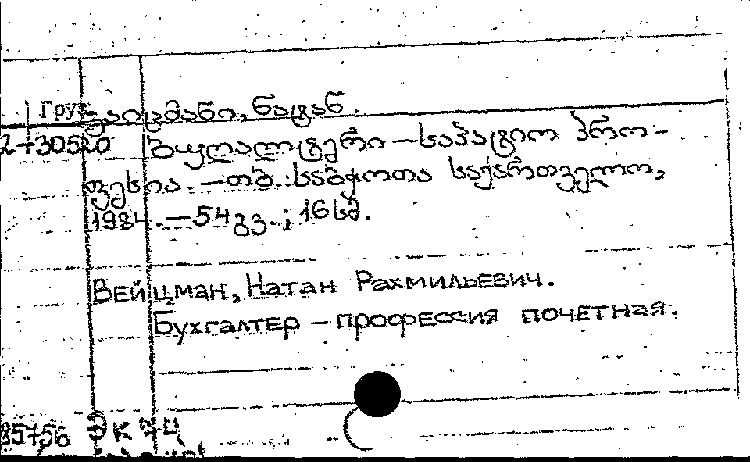 Груз
ვაიცმანი, ნატან.
2-30520 ბუღალტერი — საპატიო პრო-
ფესია. — თბ. საბჭოთა საქართველო,
1984. — 54 გვ.; 16 სმ.
Вейцман, Натан Рахмильевич.
Бухгалтер – профессия почетная.